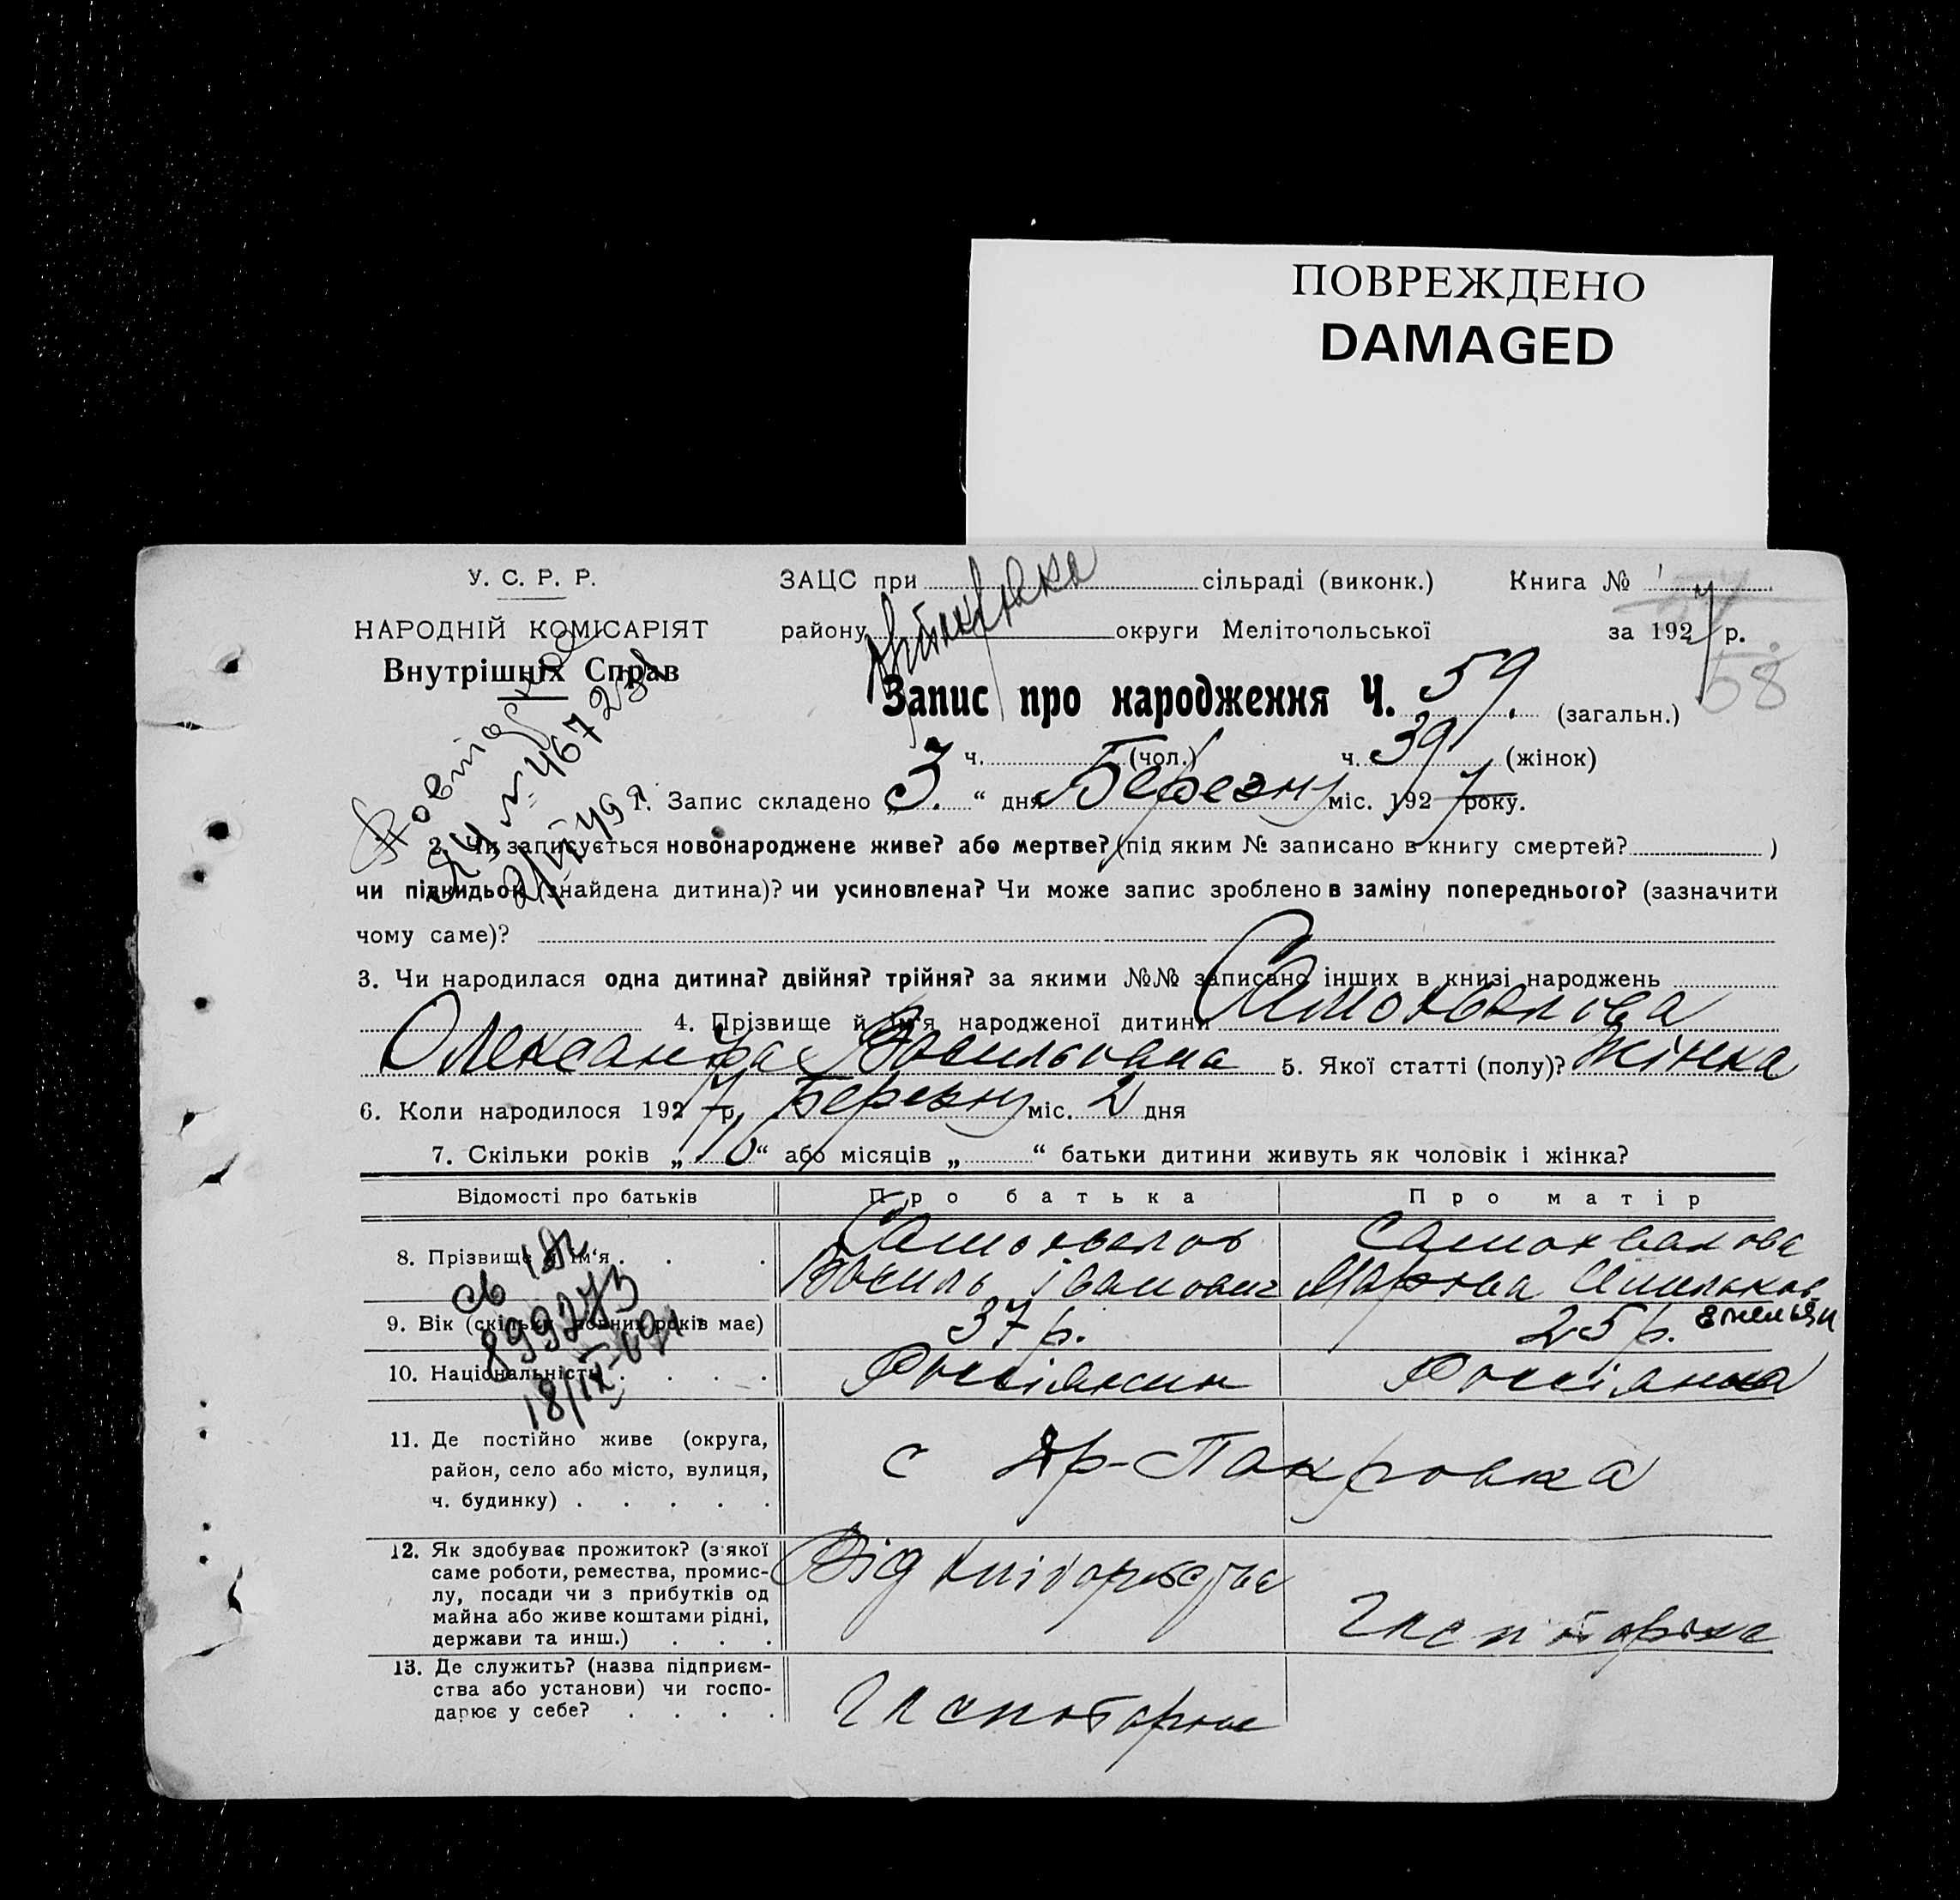 ПОВРЕЖДЕНО
DAMAGED
У. С. Р. Р.
НАРОДНІЙ КОМІСАРІЯТ
Внутрішніх Справ
ЗАЦС при сільраді (виконк.) Книга № 1
району округи Мелітопольської за 1927 р.
58
Запис про народження Ч. 59. (загальн.)
ч. (чол.) ч. 39 (жінок)
1. Запис складено „3.“ дня Березню міс. 1927 року.
2. Чи записується новонароджене живе? або мертве? (під яким № записано в книгу смертей? )
чи підкидьок (знайдена дитина)? чи усиновлена? Чи може запис зроблено в заміну попереднього? (зазначити
чому саме)?
3. Чи народилася одна дитина? двійня? трійня? за якими №№ записано інших в книзі народжень
4. Прізвище й ім'я народженої дитини Самохвалова
Олександра Васильовна 5. Якої статті (полу)? Жінка
6. Коли народилося 1927 р. Березню міс. 2 дня
7. Скільки років „10“ або місяців „ “ батьки дитини живуть як чоловік і жінка?
Відомості про батьків Про батька Про матір
8. Прізвище й ім'я Самохвалов Самохвалова
Василь Іванович
9. Вік (скільки повних років має) 37 р. 25 р. Емельян
10. Національність Россіянин Россіянка
11. Де постійно живе (округа,
район, село або місто, вулиця,
ч. будинку)
с Яр-Покровка
12. Як здобуває прожиток? (з якої
саме роботи, ремества, промис-
лу, посади чи з прибутків од
майна або живе коштами рідні,
держави та инш.)
Від
13. Де служить? (назва підприєм-
ства або установи) чи госпо-
дарює у себе?
№ 467231
св 1вп
899273
18/IX-69г